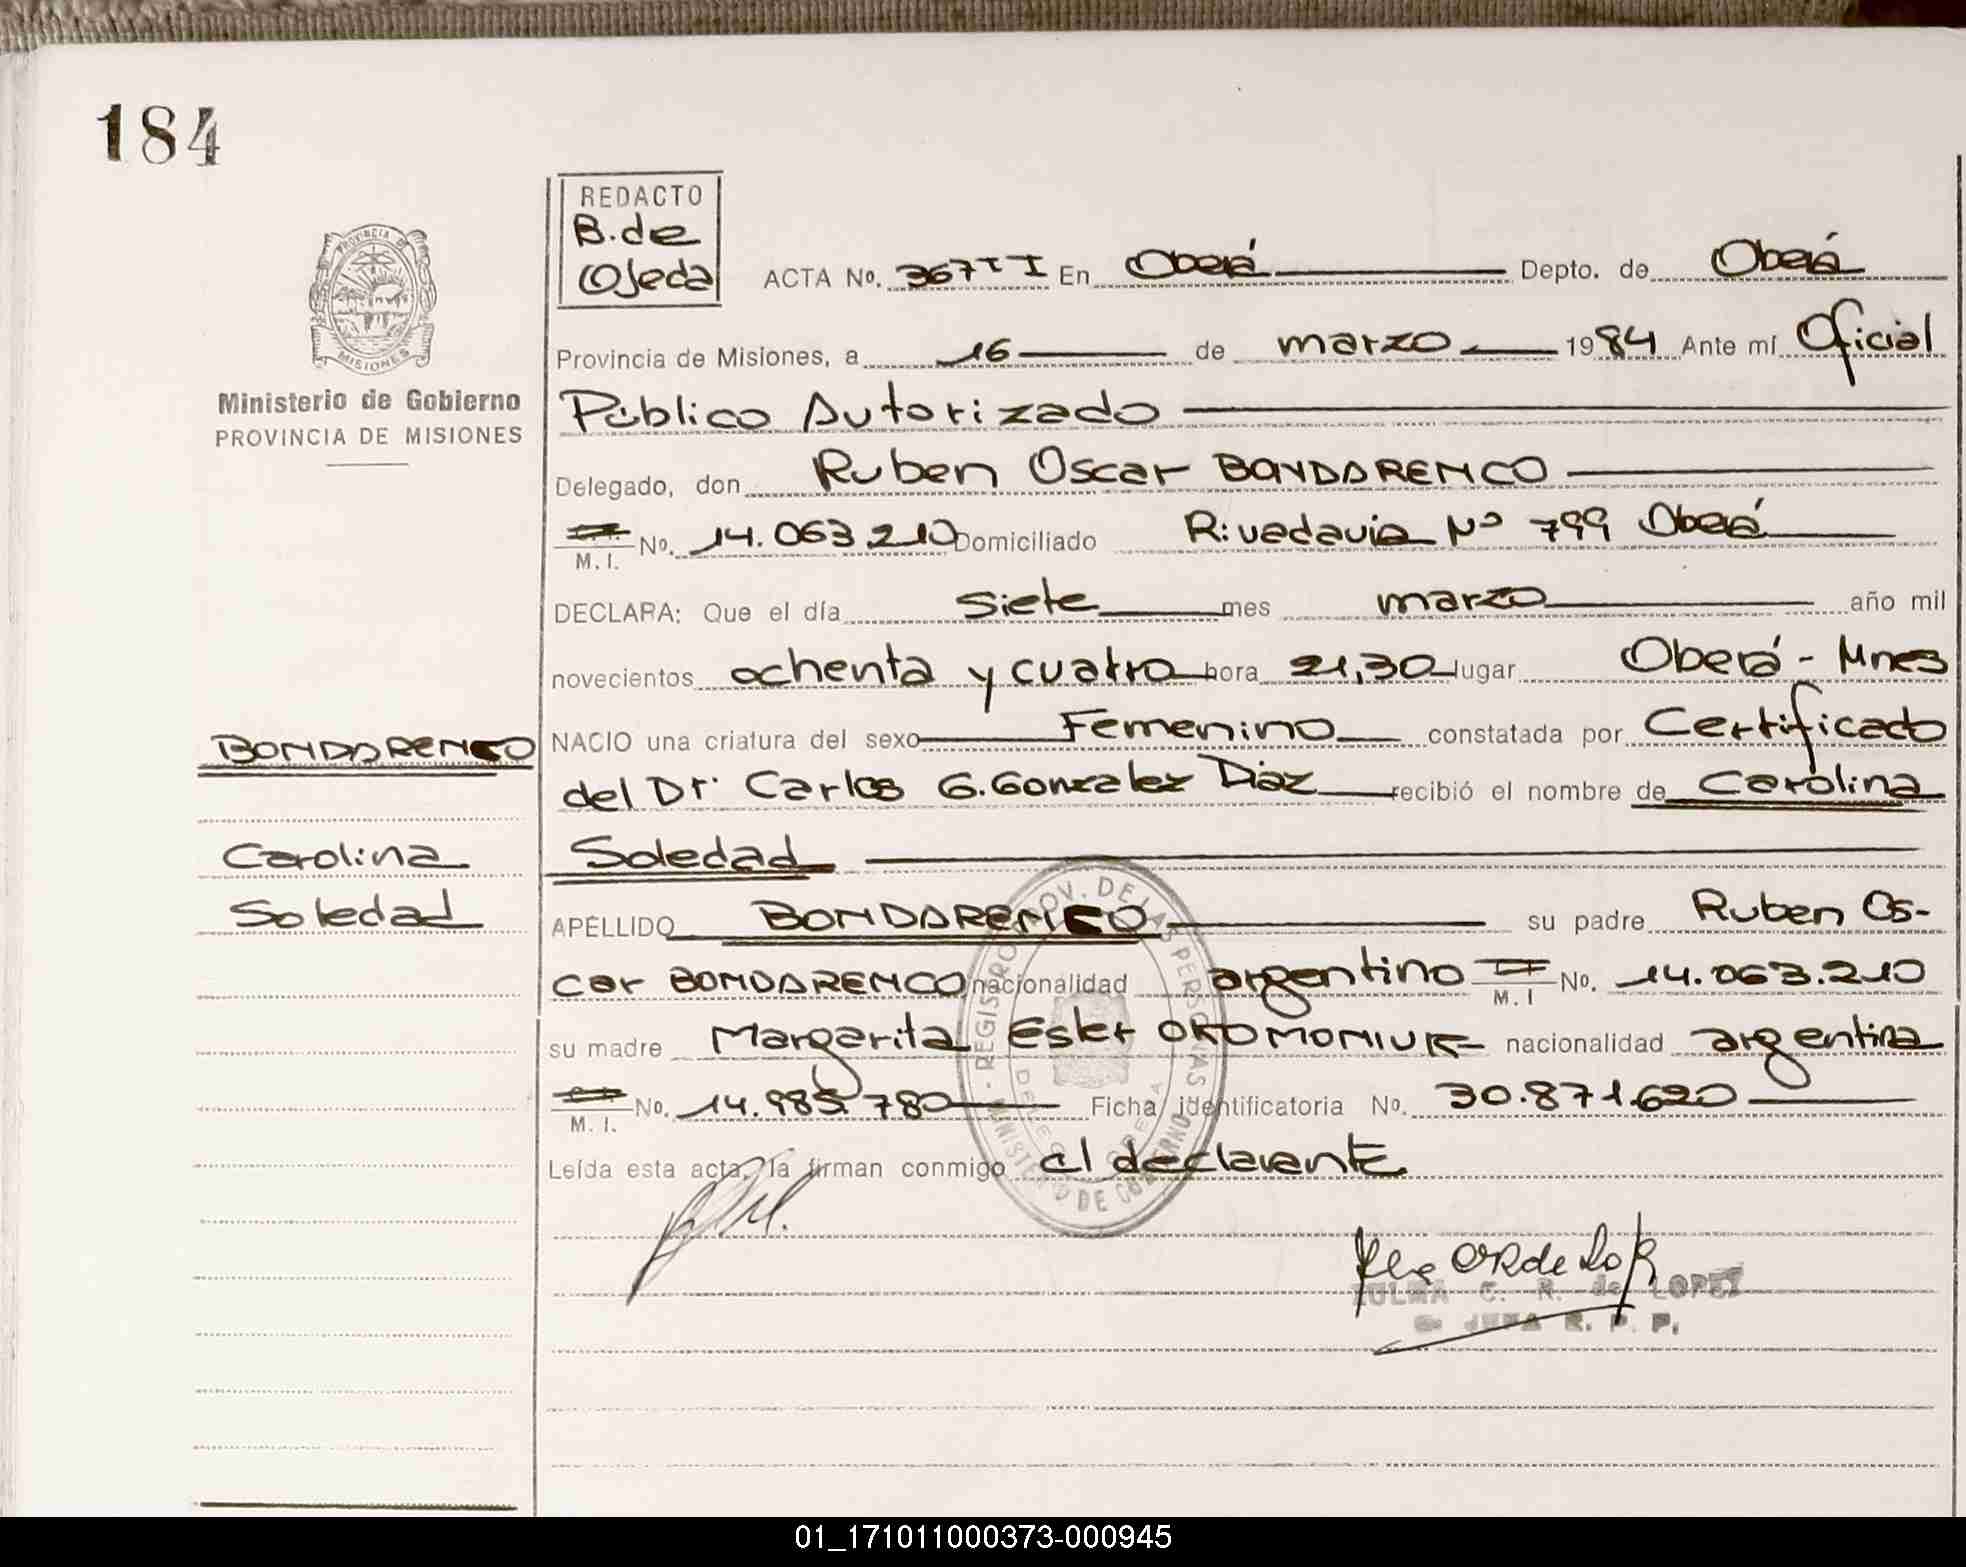 184
REDACTO
B. de
Ojeda
ACTA No. 367 TI En Oberá Depto. de Oberá
PROVINCIA DE
MISIONES
Provincia de Misiones, a 16 de marzo 1984 Ante mí Oficial
Ministerio de Gobierno
PROVINCIA DE MISIONES
Público Autorizado
Delegado, don Ruben Oscar BONDARENCO
M. I. No. 14.063.210 Domiciliado Rivadavia Nº 799 Oberá
DECLARA: Que el día siete mes marzo año mil
novecientos ochenta y cuatro hora 21,30 lugar Oberá - Mnes
BONDARENCO
NACIO una criatura del sexo Femenino constatada por Certificado
del Dr. Carlos G. Gonzalez Diaz recibió el nombre de Carolina
Carolina
Soledad
Soledad
APELLIDO BONDARENCO su padre Ruben Os-
car BONDARENCO nacionalidad argentino M. I No. 14.063.210
su madre Margarita Ester OKOMONIUK nacionalidad argentina
M. I. No. 14.985.780 Ficha identificatoria No. 30.871.620
Leída esta acta, la firman conmigo el declarante
REGISTRO PROV. DE LAS PERSONAS
MINISTERIO DE GOBIERNO
ZULMA C. R. de LOPEZ
R. P. P.
01_171011000373-000945